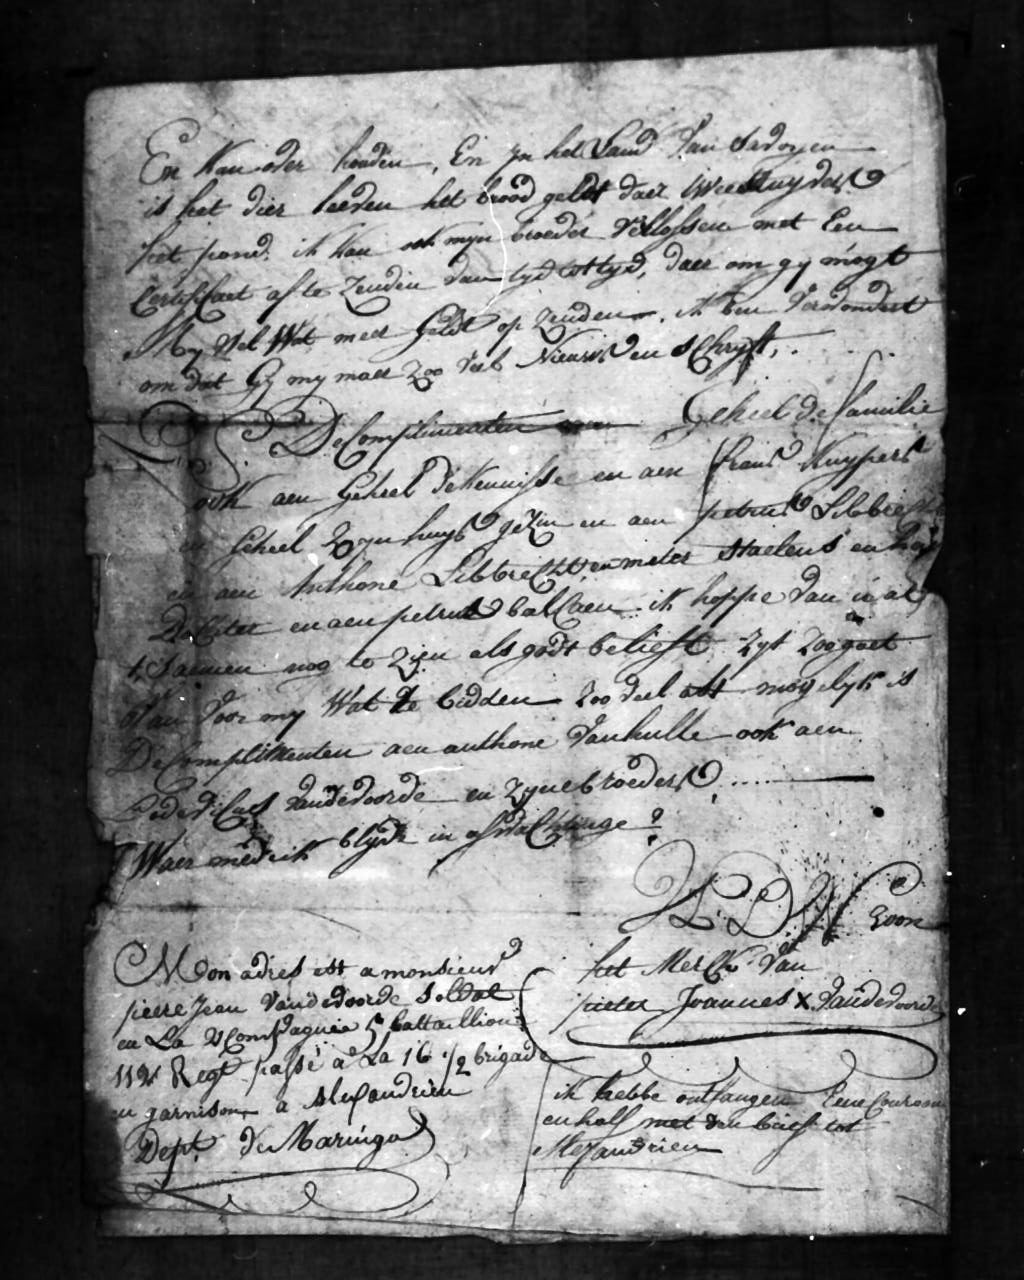 En Kan oder houden, En in het Land van Savoyen
is het dier leeven het brood geldt daer twee stuyvers
het pond, ik kan ook myn broeder verlossen met Een
Certificaet af te zenden van tyd tot tyd, daer om gy mogt
My wel wat met geldt op zenden, ik ben verwondert
om dat Gy my maer zoo veel Nieuws en schryft,
De Complimenten aen Geheel de familie
ook aen Geheel de kennisse en aen frans Kuypers
en Geheel zyn huys gezin en aen petrus Libbrecht
en aen Anthone Libbrecht, en meter Staelens en
en aen petrus balcaen ik hoppe van u al
t saemen nog te zien als godt belieft zyt zoo goet
van voor my Wat te bidden zoo veel als mogelyk is
De Complimenten aen anthone Vanhulle ook aen
Vandevoorde en zyne broeders
Waer mede ik blyve in afwachtinge?
U L D W Zoon
het Merck van
pieter Joannes x Vandevoorde
Mon adres est a monsieur
pierre Jean Vandevoorde Soldat
en La Compagnie 5 battaillion
112 Regt passé a La 16 1/2 brigade
en garnison a Alexandrien
Dept du Maringo
ik hebbe ontfangen Eene Couronne
en half met den brief tot
Alexandrien